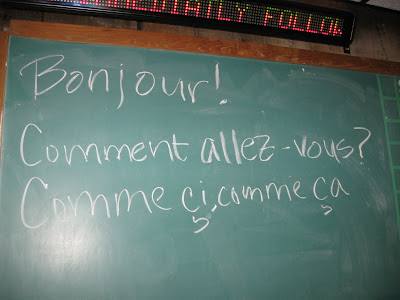 DAILY FOLLOW
Bonjour!
Comment allez-vous?
Comme çi, comme ça